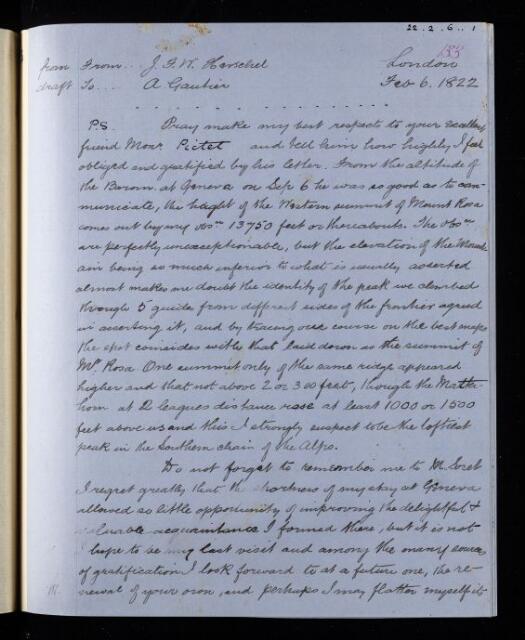 22.2.6..1
155
from From... J. F. W. Herschel London
draft To.... A. Gautier Feb 6. 1822
P.S. Pray make my best respects to your excellent
friend Monr. Pictet and tell him how highly I feel
obliged and gratified by his letter. From the altitude of
the Barom. at Geneva on Sep 6 he was so good as to com-
municate, the height of the Western summit of Mount Rosa
comes out by my obsns 13750 feet or thereabouts. The obsns
are perfectly unexceptionable, but the elevation of the Mount-
ain being so much inferior to what is usually asserted
almost makes me doubt the identity of the peak we climbed
through 5 guides from different sides of the frontier agreed
in asserting it, and by tracing our course on the best maps
the spot coincides with that laid down as the summit of
Mt. Rosa. One summit only of the same ridge appeared
higher and that not above 2 or 300 feet, though the Matter-
horn at 2 leagues distance rose at least 1000 or 1500
feet above us and this I strongly suspect to be the loftiest
peak in the Southern chain of the Alps.
Do not forget to remember me to M. Soret
I regret greatly that the shortness of my stay at Geneva
allowed so little opportunity of improving the delightful &
valuable acquaintance I formed there, but it is not
I hope to be my last visit and among the many sources
of gratification I look forward to at a future one, the re-
newal of your own, and perhaps I may flatter myself it